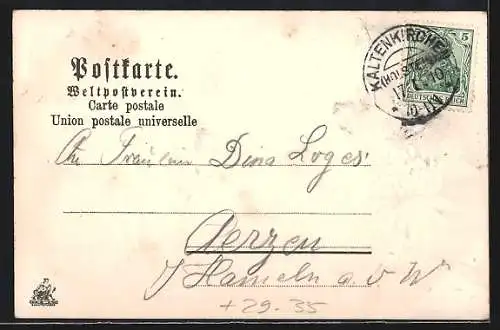 Postkarte.
Weltpostverein.
Carte postale
Union postale universelle
KALTENKIRCHEN
(HOLSTEIN)
17. 1. 10
* 10-11
5
DEUTSCHES REICH
An Fräulein Dina Loges
Aerzen
Hameln a. W
+ 29.35